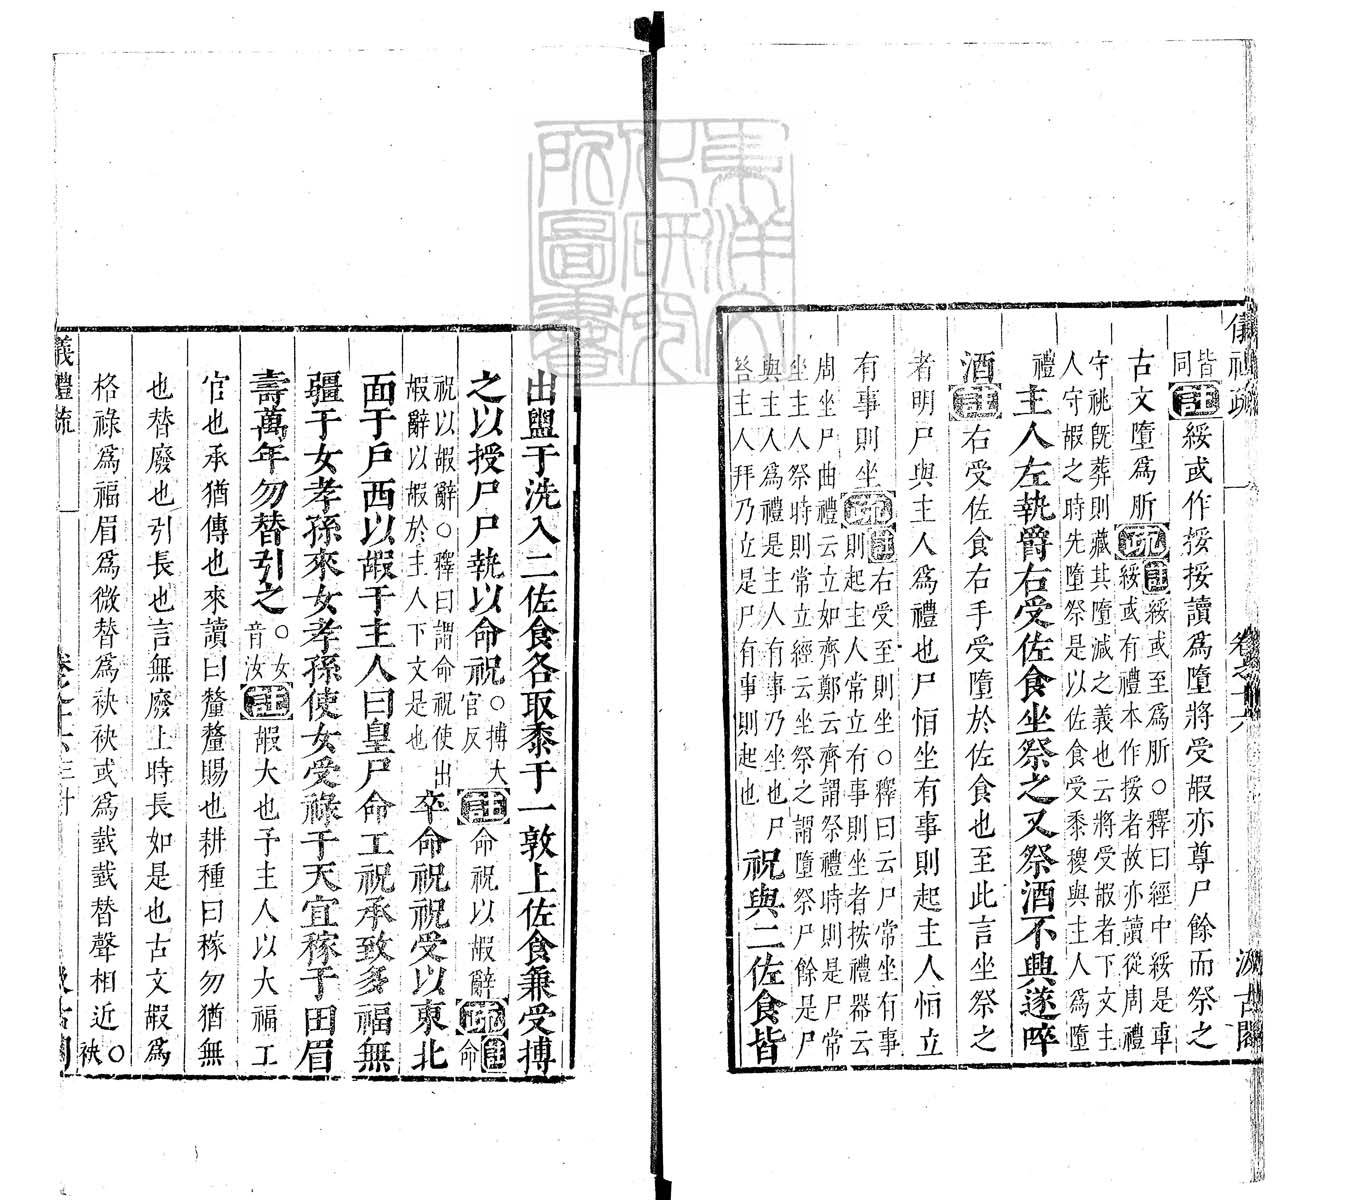 儀禮疏 卷之十六 汲古閣
皆同註綏或作挼挼讀爲墮將受嘏亦尊尸餘而祭之
古文墮爲肵疏註綏或至爲肵○釋曰經中綏是車
綏或有禮本作挼者故亦讀從周禮
守祧旣葬則藏其墮減之義也云將受嘏者下文主
人守嘏之時先墮祭是以佐食受黍稷與主人爲墮
禮 主人左執爵右受佐食坐祭之又祭酒不興遂啐
酒註右受佐食右手受墮於佐食也至此言坐祭之
者明尸與主人爲禮也尸恒坐有事則起主人恒立
有事則坐疏註右受至則坐○釋曰云尸常坐有事
則起主人常立有事則坐者按禮器云
周坐尸曲禮云立如齊鄭云齊謂祭禮時則是尸常
坐主人祭時則常立經云坐祭之謂墮祭尸餘是尸
與主人爲禮是主人有事乃坐也尸
荅主人拜乃立是尸有事則起也
祝與二佐食皆
出盥于洗入二佐食各取黍于一敦上佐食兼受搏
之以授尸尸執以命祝○搏大官反註命祝以嘏辭疏註命
祝以嘏辭○釋曰謂命祝使出
嘏辭以嘏於主人下文是也
卒命祝祝受以東北
面于戶西以嘏于主人曰皇尸命工祝承致多福無
疆于女孝孫來女孝孫使女受祿于天宜稼于田眉
壽萬年勿替引之○女音汝註嘏大也予主人以大福工
官也承猶傳也來讀曰釐釐賜也耕種曰稼勿猶無
也替廢也引長也言無廢止時長如是也古文嘏爲
格祿爲福眉爲微替爲袂袂或爲臷臷替聲相近○袂
儀禮疏 卷之十六 三十 汲古閣
東洋文化研究所圖書